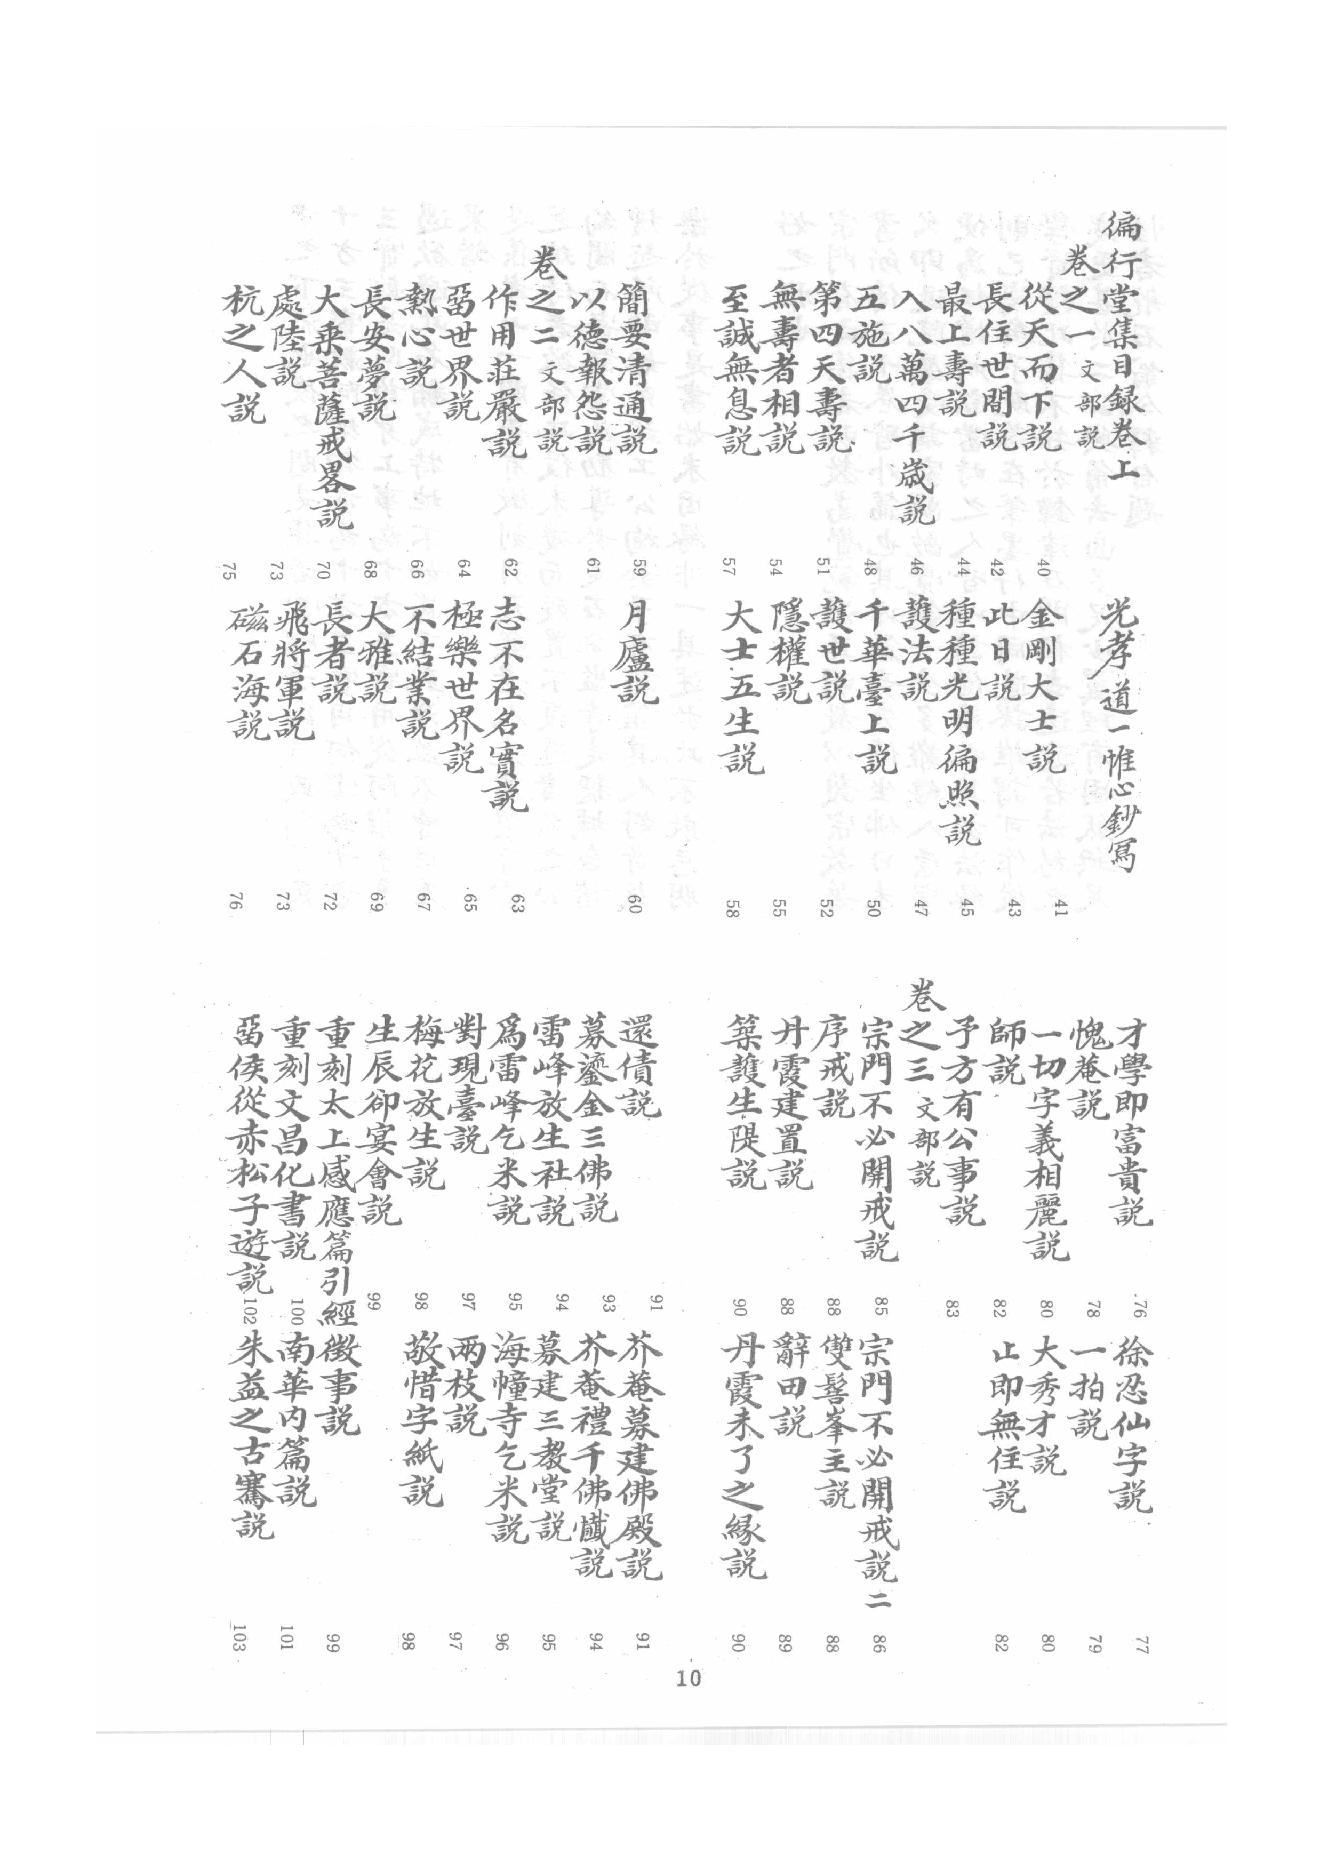 徧行堂集目録卷上
光孝道一惟心鈔寫
卷之一 文部説
從天而下説 40
金剛大士説 41
長住世間説 42
此日説 43
最上壽説 44
種種光明徧照説 45
八八萬四千歲説 46
護法説 47
五施説 48
千華臺上説 50
第四天壽説 51
護世説 52
無壽者相説 54
隱權説 55
至誠無息説 57
大士五生説 58
簡要清通説 59
月廬説 60
以德報怨説 61
卷之二 文部説
作用莊嚴説 62
志不在名實説 63
畱世界説 64
極樂世界説 65
熱心説 66
不結業説 67
長安夢説 68
大雅説 69
大乘菩薩戒畧説 70
長者説 72
處陸説 73
飛將軍説 73
杭之人説 75
磁石海説 76
才學即富貴説 76
徐忍仙字説 77
愧菴説 78
一拍説 79
一切字義相麗説 80
大秀才説 80
師説 82
止即無住説 82
予方有公事説 83
卷之三 文部説
宗門不必開戒説 85
宗門不必開戒説二 86
序戒説 88
雙髻峯主説 88
丹霞建置説 88
辭田説 89
築護生隄説 90
丹霞未了之緣説 90
還債説 91
芥菴募建佛殿説 91
募鎏金三佛説 93
芥菴禮千佛懺説 94
雷峰放生社説 94
募建三教堂説 95
爲雷峰乞米説 95
海幢寺乞米説 96
對現臺説 97
兩枝説 97
梅花放生説 98
敬惜字紙説 98
生辰卻宴會説 99
重刻太上感應篇引經徵事説 99
重刻文昌化書説 100
南華内篇説 101
畱侯從赤松子遊説 102
朱益之古騫説 103
10